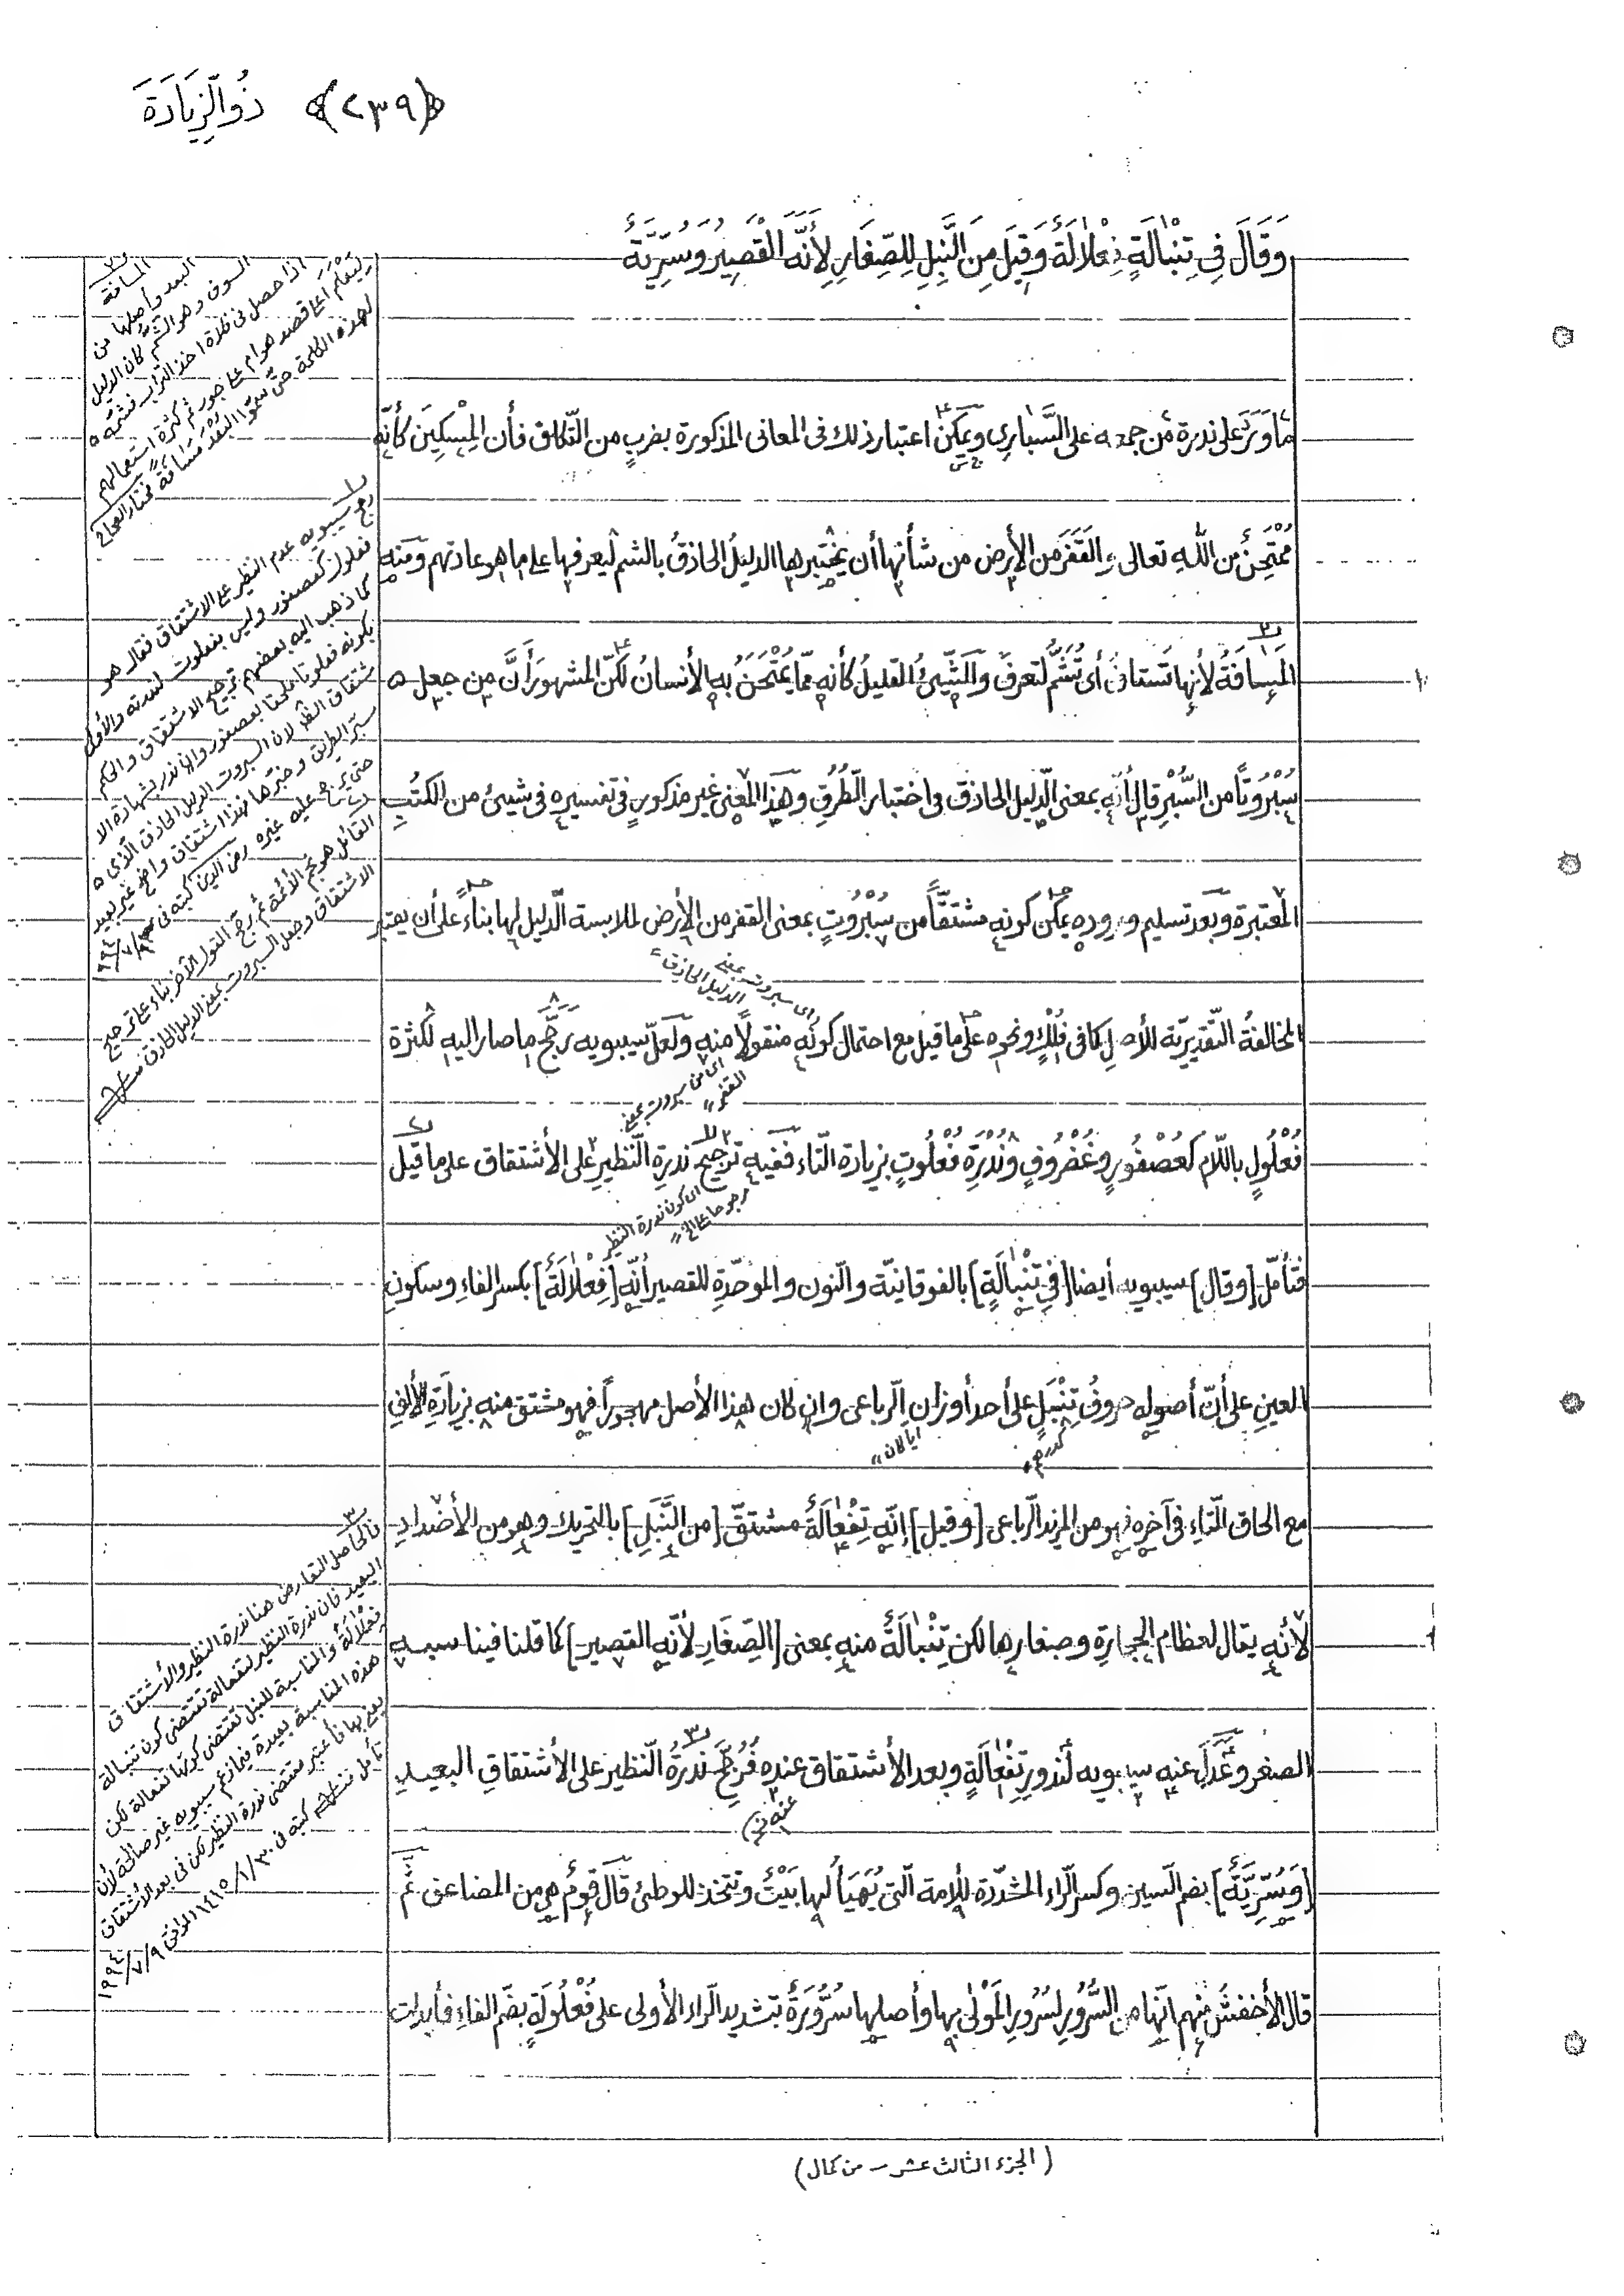 ذُو الزِّيَادَةِ ﴿٢٣٩﴾
وَقَالَ فِي تِنْبَالَةٍ فِعْلَالَةٌ وَقِيلَ مِنَ النَّبَلِ لِلصِّغَارِ لِأَنَّهُ الْقَصِيرُ وَسُرِّيَّةٌ
ما وَرَدَ على ندرة من جمعه على السَّبَارِي ويمكن اعتبار ذلك في المعاني المذكورة بضربٍ من التّكلّف فأن الْمِسْكِينَ كأنّه
مُمْتَحَنٌ من اللهِ تعالى والقَفْرَ من الأرض من شأنها أن يختبرها الدليلُ الحاذقُ بالشم ليعرفها على ما هو عادتهم ومنه
المَسَافَةُ لأنها تستاف أى تُشَمُّ لتعرفَ والشّيئُ القليلُ كأنه ممّا يُمْتَحَنُ به الأنسانُ لكنّ المشهورَ أَنَّ من جعل
سُبْرُوتًا من السَّبْرِ قال أنّه بمعنى الدّليل الحاذق في اختبار الطُّرُقِ وهذا المعنى غير مذكورٍ في تفسيره في شيئ من الكتُبِ
المعتبرة وبعد تسليم وروده يمكن كونه مشتقًّا من سُبْرُوتٍ بمعنى القفر من الأرض لملابسة الدّليل لها بناءً على أن يعتبر
المخالفةُ التّقديريّة للأصلِ كما في فُلْكٍ ونحوه على ما قيل مع احتمال كونه منقولًا منه ولعلّ سيبويه رجّح ما صار اليه لكثرة
فُعْلُولٍ باللّام كَعُصْفُورٍ وغُضْرُوفٍ ونُدْرَةِ فُعْلُوتٍ بزيادة التّاء ففيه ترجيح ندرةِ النّظيرِ على الأشتقاق على ما قيل
فتأمّل [وقال] سيبويه أيضا [في تِنْبالَةٍ] بالفوقانيّة والنّون والموحّدةِ للقصير أنّه [فِعْلالَةٌ] بكسر الفاءِ وسكونِ
العينِ على أنّ أصوله حروفُ تِنْبَلٍ على أحد أوزان الرّباعى وان كان هذا الأصل مهجوراً فهو مشتق منه بزيادَةِ الألفِ
مع الحاق التّاءِ في آخره فهو من المزيد الرّباعى [وقيل] إنّه تِفْعَالَةٌ مشتقّ [من النَّبَلِ] بالتحريك وهو من الأضدادِ
لأنه يقال لعظام الحجارةِ وصغارها لكن تِنْبالَةٌ منه بمعنى [الصِّغَارِ لأنّه القصير] كما قلنا فيناسبه
الصغر وعَدَلَ عنه سيبويه لندورِ تِفْعَالَةٍ وبعد الأشتقاق عنده فَرُجِّحَ ندرةُ النّظير على الأشتقاقِ البعيد
[وَسُرِّيَّةٌ] بضم السين وكسر الرّاء المشدّدة للأمة الّتى يُهَيَأُ لها بَيْتٌ وتتخذ للوطئ قال قومٌ هى من المضاعف ثم
قال الأخفشُ منهم انّها من السُّرُورِ لسُرُورِ المَوْلى بها وأصلها سُرُّورَةٌ بتشديد الرّاء الأولى على فُعْلُولَةٍ بضمّ الفاءِ فأبدلت
المسافة
البعد وأصلها من
السوف وهو الشم كان الدليل
اذا حصل في فلاة اخذ التراب فشمّه
ليعلم أعلى قصد هو أم على جور ثم كثرة استعمالهم
لهذه الكلمة حتّى سمّوا البُعْد مَسَافَةً مختار الصحاح
رجّح سيبويه عدم النظير على الاشتقاق فقال هو
فعلول كعصفور وليس بفعلوت لندرته والأولى
كما ذهب اليه بعضهم ترجيح الاشتقاق والحكم
بكونه فعلوتا ملحقا بعصفور والأندر بشهادة الا
شتقاق الظ لان السبروت الدليل الحاذق الّذى
سبر الطريق وخبرها فهذا اشتقاق واضح غير بعيد
حتى يرجّح عليه غيره رضى الدين كتبه في
القائل هو نجم الأئمة ثم رجّح القول الآخر بناء على ترجيح
الاشتقاق وجعل السبروت بمعنى الدليل الحاذق
أى سبروت بمعنى
الدليل الحاذق
اى من سبروت بمعنى
القفر
اى كون ندرة النظير
مرجوحا
كدرهم
ايا لان
عنه
فالحاصل التعارض هنا ندرة النظير والأشتقاق
البعيد فان ندرة النظير لتفعالة تقتضى كون تنبالة
فِعْلَالَةً والمناسبة للنبل تقتضى كونها تفعالة لكن
هذه المناسبة بعيدة فيما زعم سيبويه غير صالحة لأن
يعنى بها فأعتبر مقتضى ندرة النظير لكن في بعد الأشتقاق
تأمل كتبه في ١٤١٥/١/٣٠ الموافق ١٩٩٤/٧/٩
(الجزء الثالث عشر - من كمال)